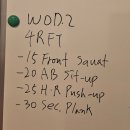 WOD.2
4RFT
-15 Front Squat
-20 AB Sit-up
-25 H.R Push-up
-30 Sec. Plank